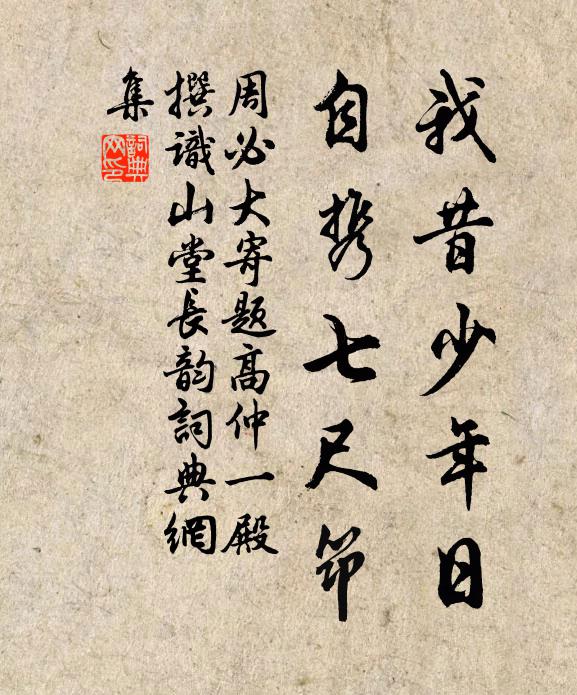 我昔少年日
自携七尺筇
周必大寄題高仲一殿
撰識山堂長韵詞典網
集
詞典
网印